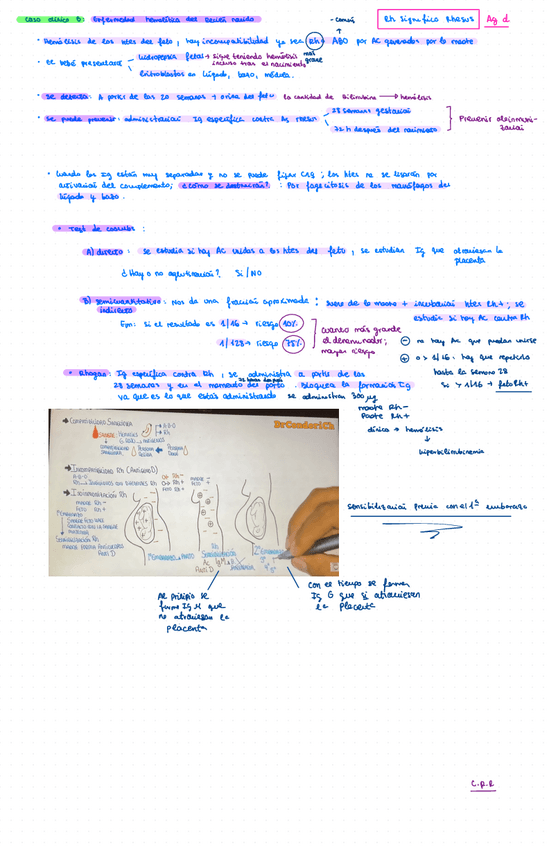 caso clínico 5: Enfermedad hemolítica del Recién nacido
- común
Rh significa Rhesus
Ag d
· Hemólisis de los htes del feto, hay incompatibilidad ya sea Rh+ ABO por AC generados por la madre
más grave
· el bebé presentará
hidropesia fetal → sigue teniendo hemólisis incluso tras el nacimiento
Eritroblastos en hígado, bazo, médula.
· se detecta: A partir de las 20 semanas + orina del feto la cantidad de Bilirrubina → hemólisis
· se puede prevenir: administración Ig específica contra Ag RHESUS
28 semanas gestación
72 h después del nacimiento
Prevenir aloinmunización
· Cuando los Ig están muy separadas y no se puede fijar C1q; los htes no se lisarán por
activación del complemento; ¿cómo se destruirán? : Por fagocitosis de los macrófagos del
hígado y bazo.
· Test de coombs :
A) directo : se estudia si hay AC unidos a los htes del feto, se estudian Ig que atraviesan la
placenta
¿Hay o no aglutinación? Si/NO
B) semicuantitativo: Nos da una fracción aproximada : suero de la madre + incubación htes Rh+; se
indirecto
estudia si hay AC contra Rh
Ejm: si el resultado es 1/16 → riesgo 10%
1/128 → riesgo 75%
cuando más grande
el denominador;
mayor riesgo
⊖ no hay AC que puedan unirse
⊕ o > 1/16: hay que repetirlo
hasta la semana 28
si > 1/16 → feto Rh+
· Rhogan: Ig específica contra Rh, se administra a partir de las
28 semanas y en el momento del parto. Bloquea la formación Ig
ya que es lo que estás administrando se administran 300 µg
madre Rh-
Padre Rh+
clínica → hemólisis
↓
hiperbilirrubinemia
→ Compatibilidad Sanguínea
DrCondoriCh
→ A-B-O
→ Rh
→ Incompatibilidad Rh (Antígeno D)
A-B-O
→ Incompatibilidad Rh
madre Rh-
feto Rh+
Embarazo → Parto
Sensibilización Rh
Anti D
2° Embarazo
sensibilización previa con el 1er embarazo
Al principio se
forma Ig M que
no atraviesan la
placenta
Con el tiempo se forman
Ig G que si atraviesan
la placenta
C.P.R